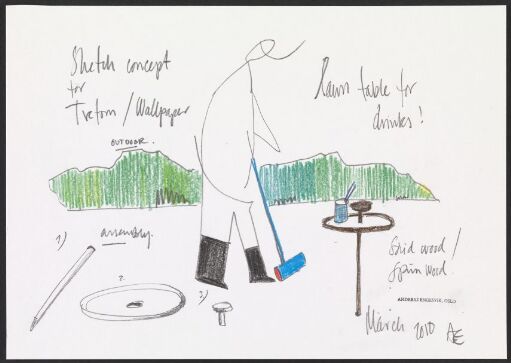 Sketch concept
for
Tretorn / Wallpaper
OUTDOOR.
Lawn table for
drinks!
assembly.
1)
2.
3)
Solid wood /
Spun wood.
ANDREAS ENGESVIK, OSLO
March 2010 AE